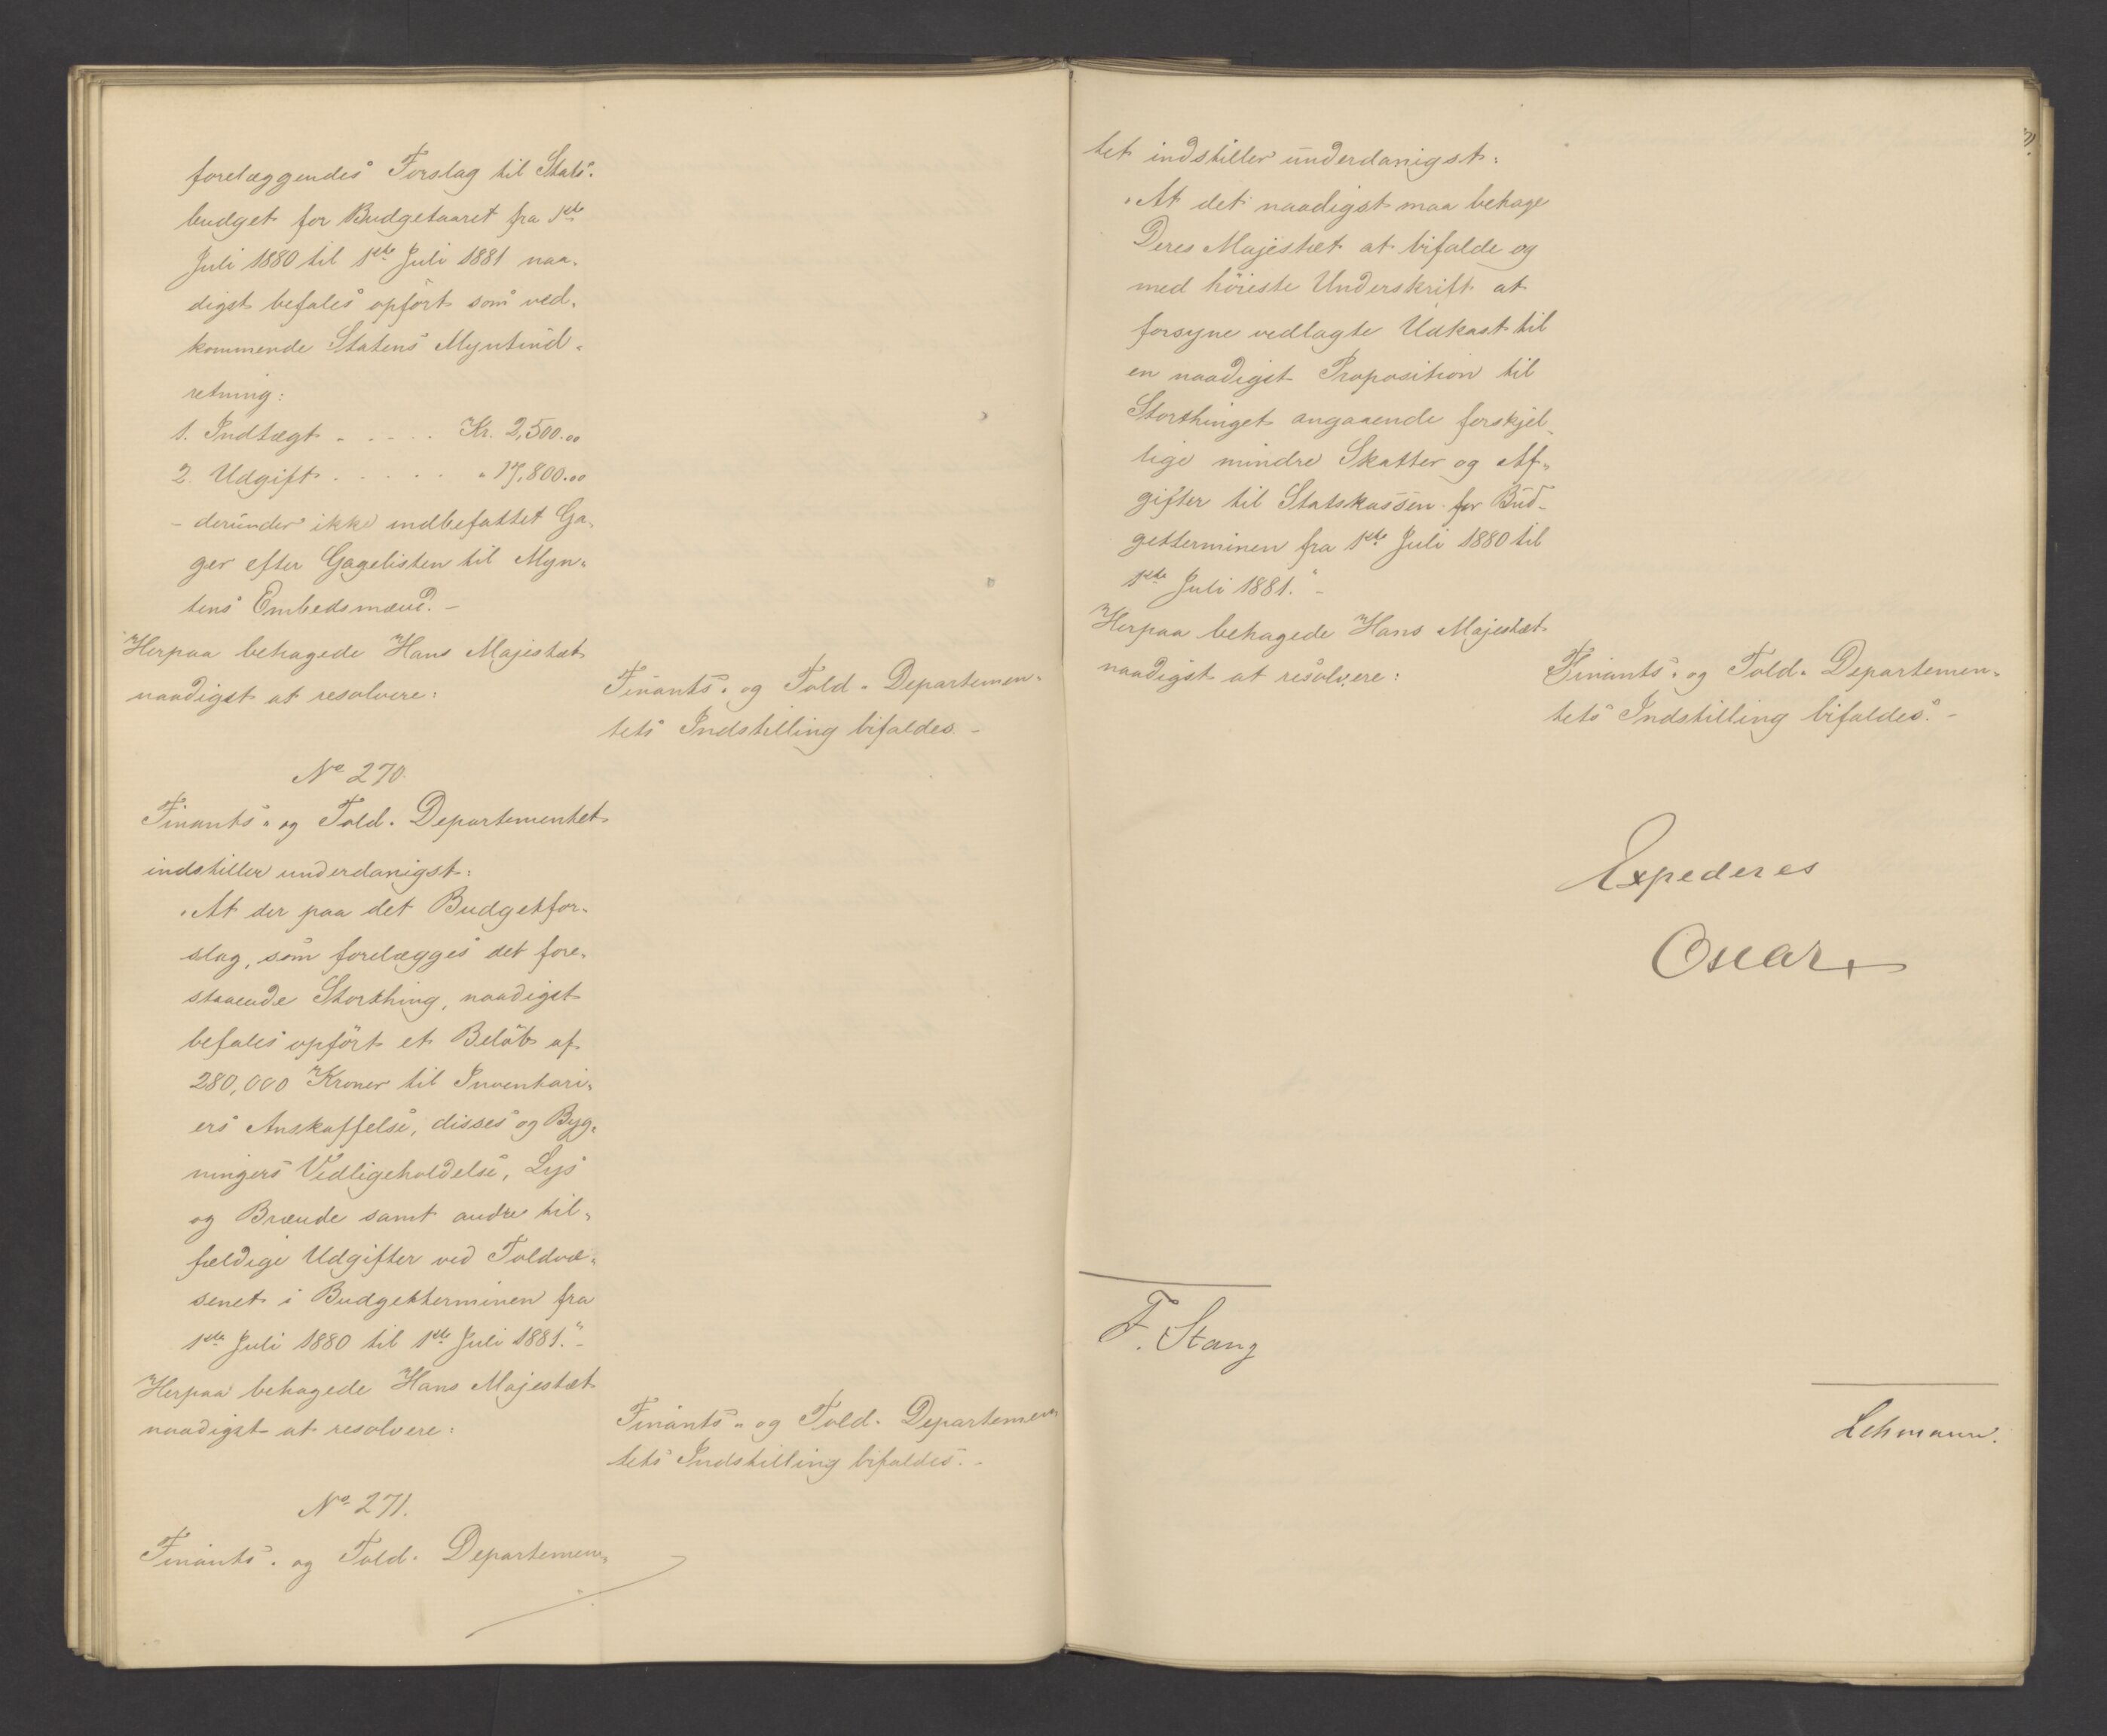 forelæggendes Forslag til Stats-
budget for Budgetaaret fra 1ste
Juli 1880 til 1ste Juli 1881 naa-
digst befales opført som ved-
kommende Statens Myntind-
retning:
1. Indtægt - - - - - Kr. 2,500.00
2. Udgift . . . . . " 17,800.00
- derunder ikke indbefattet Ga-
ger efter Gagelisten til Myn-
tens Embedsmænd. -
Herpaa behagede Hans Majestæt
naadigst at resolvere:
Finants- og Told-Departemen-
tets Indstilling bifaldes. -
No 270.
Finants- og Told-Departementet
indstiller underdanigst:
"At der paa det Budgetfor-
slag, som forelægges det fore-
staaende Storthing, naadigst
befales opført et Beløb af
280,000 Kroner til Inventari-
ers Anskaffelse, disses og Byg-
ningers Vedligeholdelse, Lys
og Brænde samt andre til-
fældige Udgifter ved Toldvæ-
senet i Budgetterminen fra
1ste Juli 1880 til 1ste Juli 1881." -
Herpaa behagede Hans Majestæt
naadigst at resolvere:
Finants- og Told-Departemen-
tets Indstilling bifaldes. -
No 271.
Finants- og Told-Departemen-
tet indstiller underdanigst:
"At det naadigst maa behage
Deres Majestæt at bifalde og
med høieste Underskrift at
forsyne vedlagte Udkast til
en naadigst Proposition til
Storthinget angaaende forskjel-
lige mindre Skatter og Af-
gifter til Statskassen for Bud-
getterminen fra 1ste Juli 1880 til
1ste Juli 1881." -
Herpaa behagede Hans Majestæt
naadigst at resolvere:
Finants- og Told-Departemen-
tets Indstilling bifaldes. -
Expederes
Oscar
F. Stang
Lehmann.